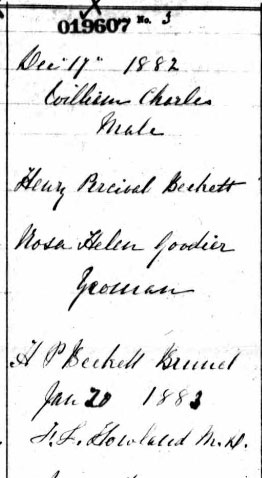 019607 No. 3
Dec 17" 1882
William Charles
Male
Henry Percival Beckett
Rosa Helen Goodier
Yeoman
H P Beckett Brunel
Jan 20 1883
F. L. Howland M.D.